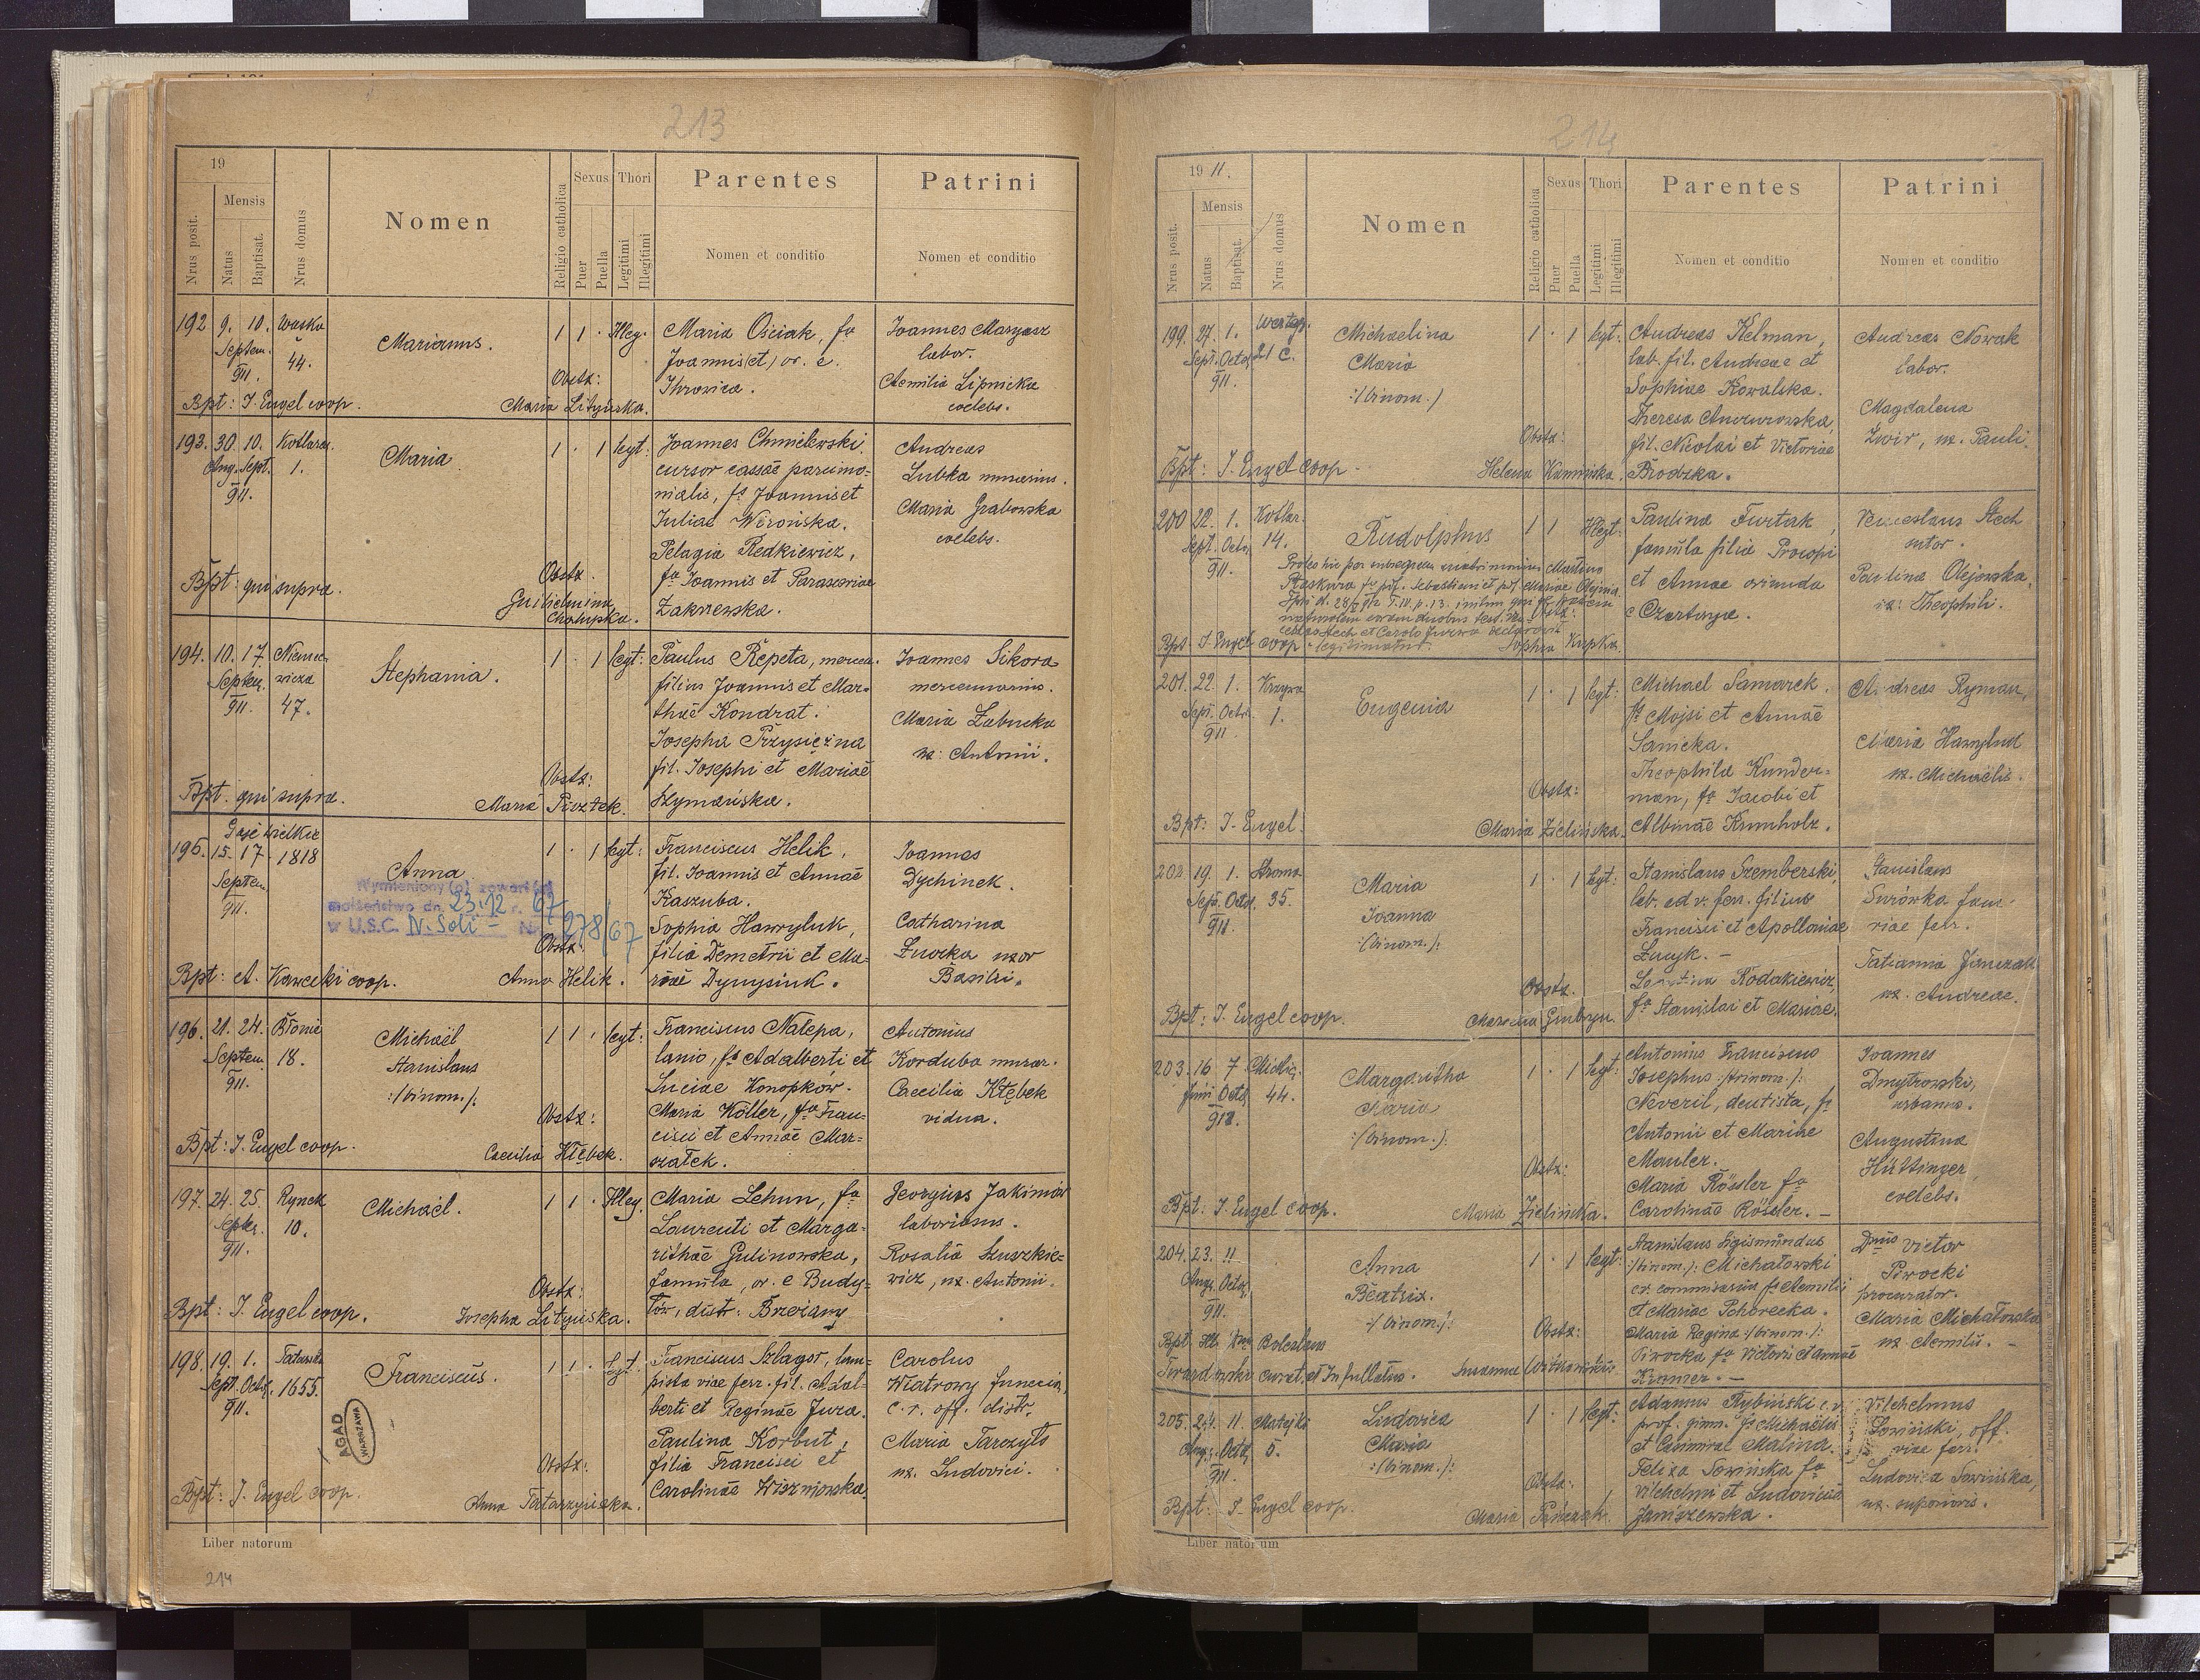 213
19
Nrus posit.
Mensis
Natus
Baptisat.
Nrus domus
Nomen
Religio catholica
Sexus
Puer
Puella
Thori
Legitimi
Illegitimi
Parentes
Nomen et conditio
Patrini
Nomen et conditio
192 9. 10. Wąska Marianus. 1 1 · Illeg. Maria Ościak, fa Joannes Maryasz
Septem. 44. labor.
911. Joannis (et) or. e. Aemilia Lipnicka
Obstx: coelebs.
Bpt: J. Engel coop. Maria Lityńska.
193. 30. 10. Kotlarsk. Maria 1 · 1 legt: Joannes Chmielewski Andreas
Aug. Sept. 1. cursor cassae parcimo- Lubka murarius.
911. nialis, fs Joannis et Maria Grabowska
Juliae Werońska. coelebs.
Pelagia Redkiewicz,
Obstx. fa Joannis et Parasceviae
Bpt: qui supra. Guilielmina Chalupka. Zakrzewska.
194. 10. 17. Niemce- Stephania. 1 · 1 legt: Paulus Repeta, mercen. Joannes Sikora
Septem. wicza filius Joannis et Mar- mercennarius.
911. 47. thae Kondrat. Maria Zabucka
Josepha Przysiężna ux: Antonii.
Obstx: fil. Josephi et Mariae
Bpt. qui supra. Maria Piıztek. Szymańska.
Gaje wielkie
195. 15. 17. 1818 Anna 1 · 1 legt: Franciscus Helik, Joannes
Septem. fil. Joannis et Annae Dychinek.
911. Kaszuba. Catharina
Wymieniony(a) zawarł(a)
małżeństwo dn. 23.12 r. 67
w U.S.C. N. Soli - Nr 278/67
Sophia Hawryluk, Żurcka uxor
Obstx: filia Demetrii et Ma- Basilii.
Bpt: A. Kawecki coop. Anna Helik. riae Dynysiuk.
196. 21. 24. Błonie Michaël 1 1 · legt: Franciscus Nalepa, Antonius
Septem. 18. Stanislaus lanio, fs Adalberti et Korduba murar.
911. :/binom./: Luciae Konopków. Caecilia Kłębek
Obstx: Maria Köller, fa Fran- vidua.
cisci et Annae Mar-
Bpt: J. Engel coop. Caecilia Kłębek. szałek.
197. 24. 25. Rynek Michaël. 1 1 · Illeg. Maria Lehun, fa Georgius Jakimów
Septr. 10. Laurenti et Marga- laboriosus.
911. rithae Gulinowska, Rosalia Szuszkie-
Obstx: famula, or. e Budy- wicz, ux. Antonii.
Bpt: J. Engel coop. Josepha Lityńska. łów, distr. Brzeżany
198. 19. 1. Tatarska Franciscus. 1 1 · legt. Franciscus Szlagor, lam- Carolus
Sept. Octob. 1655. pista viae ferr. fil. Adal- Wiatrowy
911. berti et Reginae Jura. c. r. off. distr.
Paulina Korbut, Maria Tarczyło
Obstx: filia Francisci et ux. Ludovici.
Bpt: J. Engel coop. Anna Tatarzyńska. Carolinae Wiszniowska.
AGAD WARSZAWA
Liber natorum
214
214
19 11.
Nrus posit.
Mensis
Natus
Baptisat.
Nrus domus
Nomen
Religio catholica
Sexus
Puer
Puella
Thori
Legitimi
Illegitimi
Parentes
Nomen et conditio
Patrini
Nomen et conditio
199. 27. 1. Wertep. Michaelina 1 · 1 legt: Andreas Kelman, Andreas Nowak
Sept. Octob. 21 c. Maria lab. fil. Andreae et labor.
911. :/binom./ Sophiae Kowalska. Magdalena
Theresa Anczurowska, Zwir, ux. Pauli.
Obstx: fil. Nicolai et Victoriae
Bpt: J. Engel coop - Helena Kaminska. Brodzka.
200 22. 1. Kotlar. Rudolphus 1 1 Illegt: Paulina Furtak, Venceslaus Stech
Sept. Octob. 14. famula filia Procopi sutor.
911. et Annae oriunda Paulina Olejowska,
e Czartorya. ux: Theophili.
Proles hic per subsequens matrimonium Martino
legitimatur.
Bpt. J. Engel coop - Sophia Krupka.
201. 22. 1. Krzywa Eugenia 1 · 1 legt: Michael Samarek. Andreas Ryman,
Sept. Octob. 1. fs Mojsi et Annae Maria Hawryluk
911. Sanicka. ux. Michaëlis.
Theophila Kunder-
Obstx: man, fa Jacobi et
Bpt: J. Engel. Maria Zielińska. Albinae Krumholz.
202. 19. 1. Stroma Maria 1 · 1 legt: Stanislaus Szemberski, Stanislaus
Sept. Octob. 35. Joanna lab. ad v. ferr. filius Surówka
911. :/binom./: Francisci et Apolloniae viae ferr.
Łucyk. - Tatianna Janczak
Obstx. Kodakiewicz, ux. Andreae.
Bpt: J. Engel coop. fa Stanislai et Mariae.
203. 16 7 Mickie. Margaritha 1 · 1 legt: Antonius Franciscus Joannes
Junii Octob. 44. Maria Josephus :/trinom./: Dmytrowski,
911. :/binom./: Neveril, dentista, fs urbanus.
Antonii et Mariae Augustina
Obstx: Mauler. Hüttinger,
Maria Rössler fa coelebs.
Bpt: J. Engel coop. Maria Zielińska. Carolinae Rössler. -
204. 23. 11 Anna 1 · 1 legt: Stanislaus Sigismundus Dnus Victor
Aug. Octob. Beatrix. :/binom./: Michałowski Pirocki
911. :/binom./: commissarius fs Aemilii procurator.
et Mariae Pohorecka. Maria Michałowska
Obstx: Maria Regina :/binom./: ux. Aemilii. -
Bpt. Boleslaus Pirocka fa Victoris et Annae
Twardowski curat. et Infullatus. Susanna Kromer. -
205. 24. 11. Matejki Ludovica 1 · 1 legt: Adamus Rybiński c.r. Vilchelmus
Aug. Octob. 5. Maria prof. gimn. fs Michaëlis Sowiński, off.
911. :/binom./: et Casimirae Malina. viae ferr.
Obstx: Felixa Sowińska fa Ludovica Sowińska,
Vilchelmi et Ludovicae ux. superioris.
Bpt: J. Engel coop. Maria Pańczak. Janiszewska.
Liber natorum